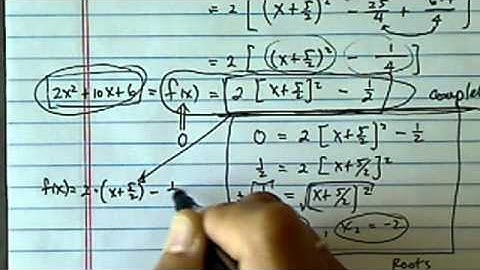 = 2 [ (x+5/2)² - 25/4 +
= 2 [ (x+5/2)² - 1/4 ]
2x²+10x+6 = f(x) = 2 [x+5/2]² - 1/2
0
0 = 2 [x+5/2]² - 1/2
1/2 = 2 [x+5/2]²
f(x)= 2·(x+5/2)² -
= √[x+5/2]²
, x₂ = -2
Roots